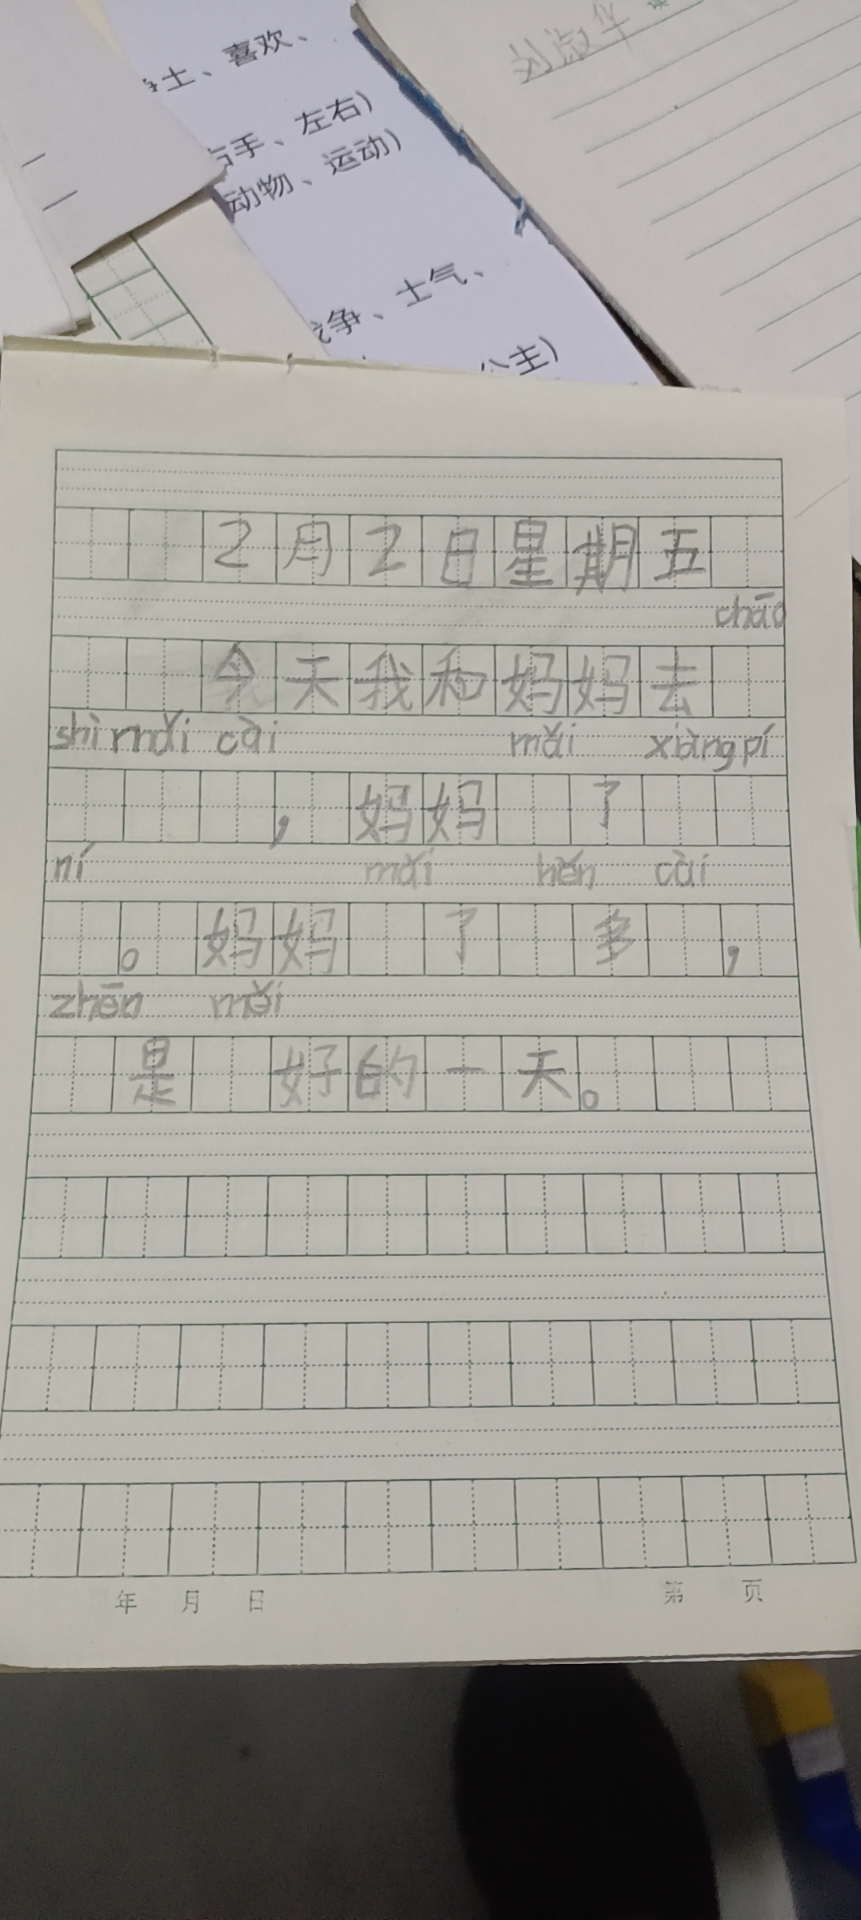 士、喜欢、
刘淑华
右手、左右)
动物、运动)
争、士气、
公主)
2月2日星期五
chāo
今天我和妈妈去
shì mǎi cài mǎi xiàng pí
，妈妈 了
ní mǎi hěn cài
。妈妈 了 多 ，
zhēn měi
是 好的一天。
年 月 日 第 页